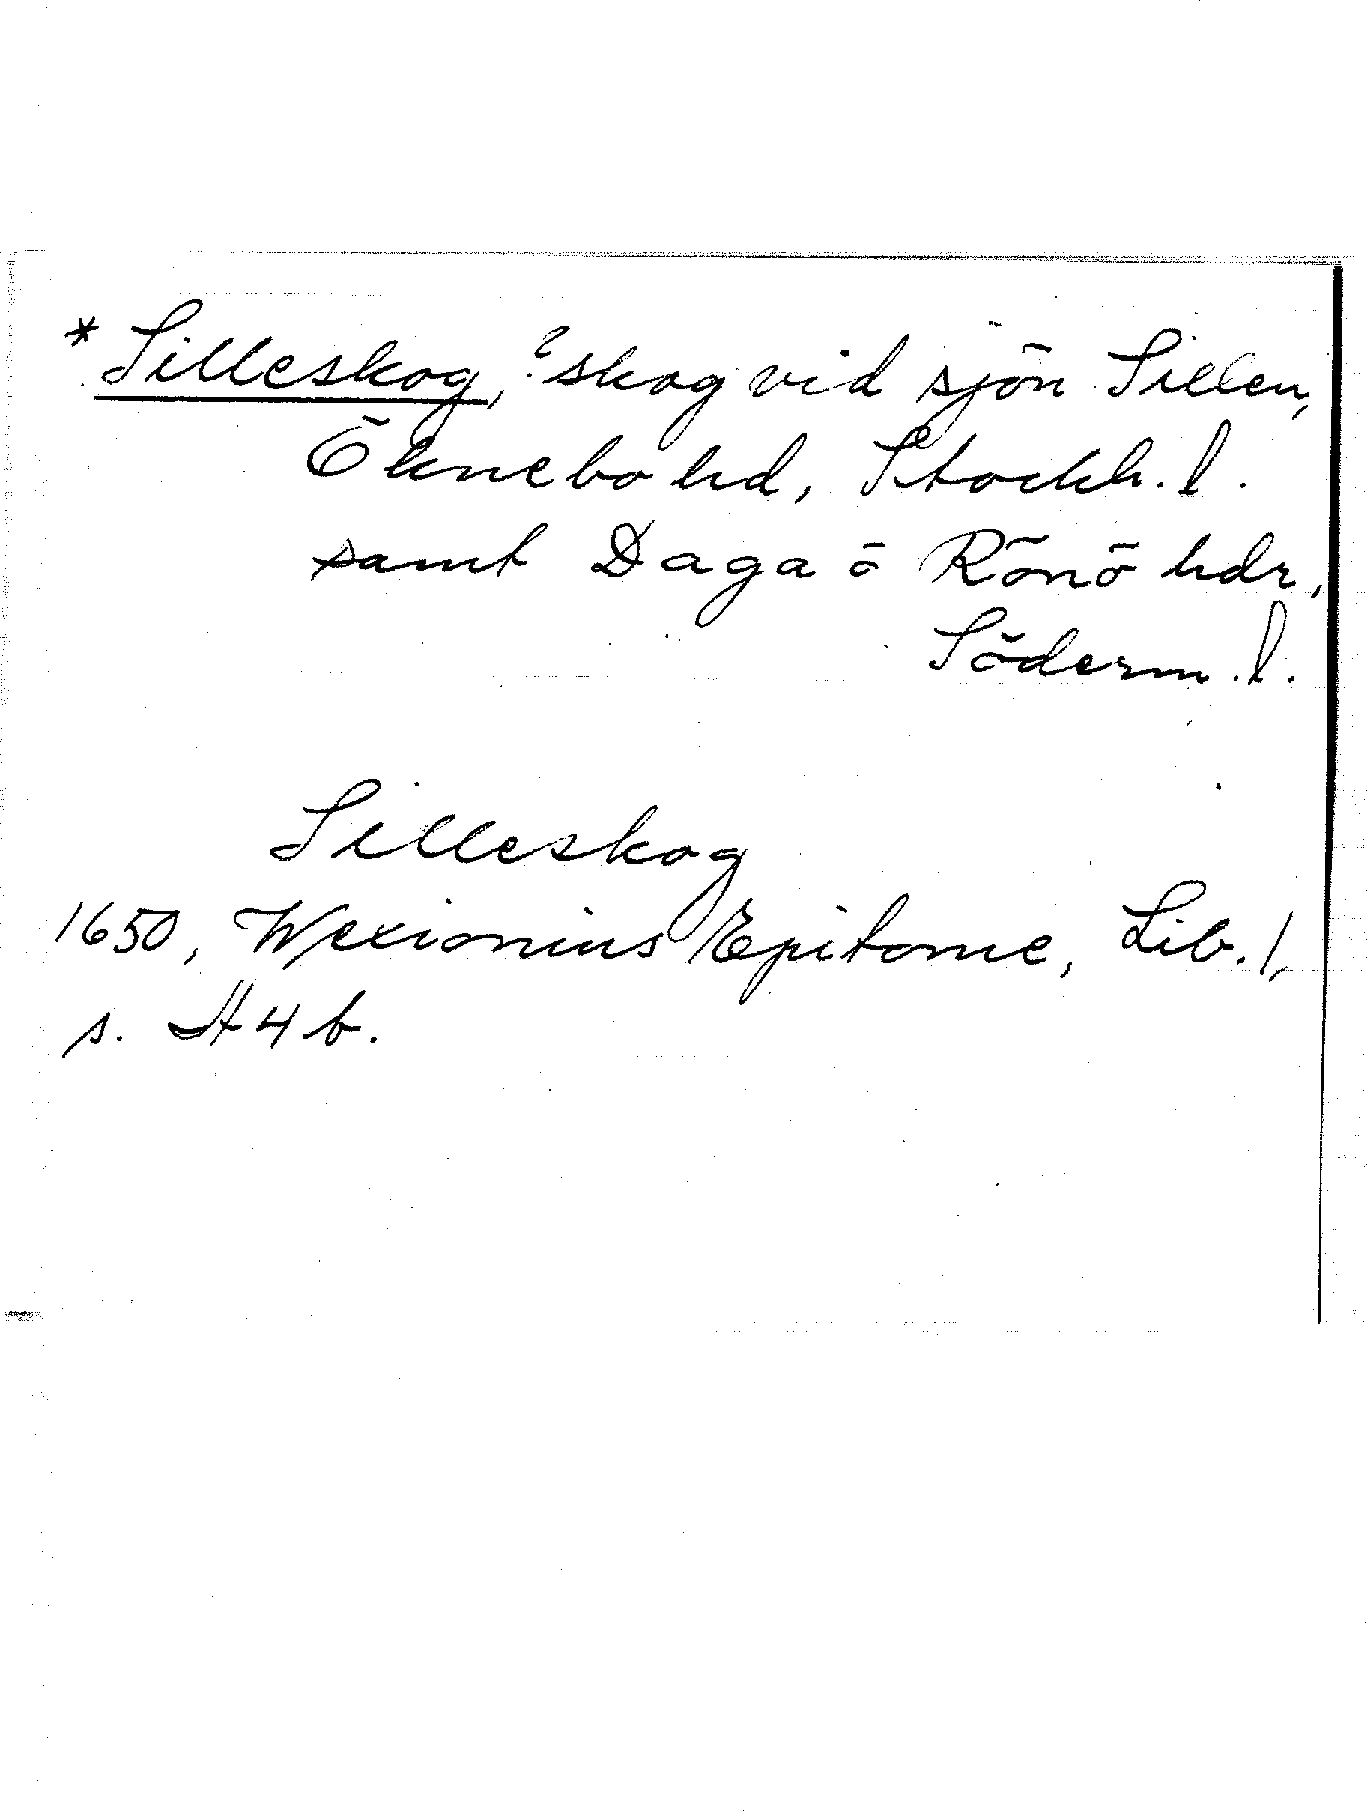 * Silleskog, ?skog vid sjön Sillen,
Öknebo hd, Stockh. l.
samt Daga o Rönö hdr,
Söderm. l.
Silleskog
1650, Wexionius Epitome, Lib. I,
s. H4b.